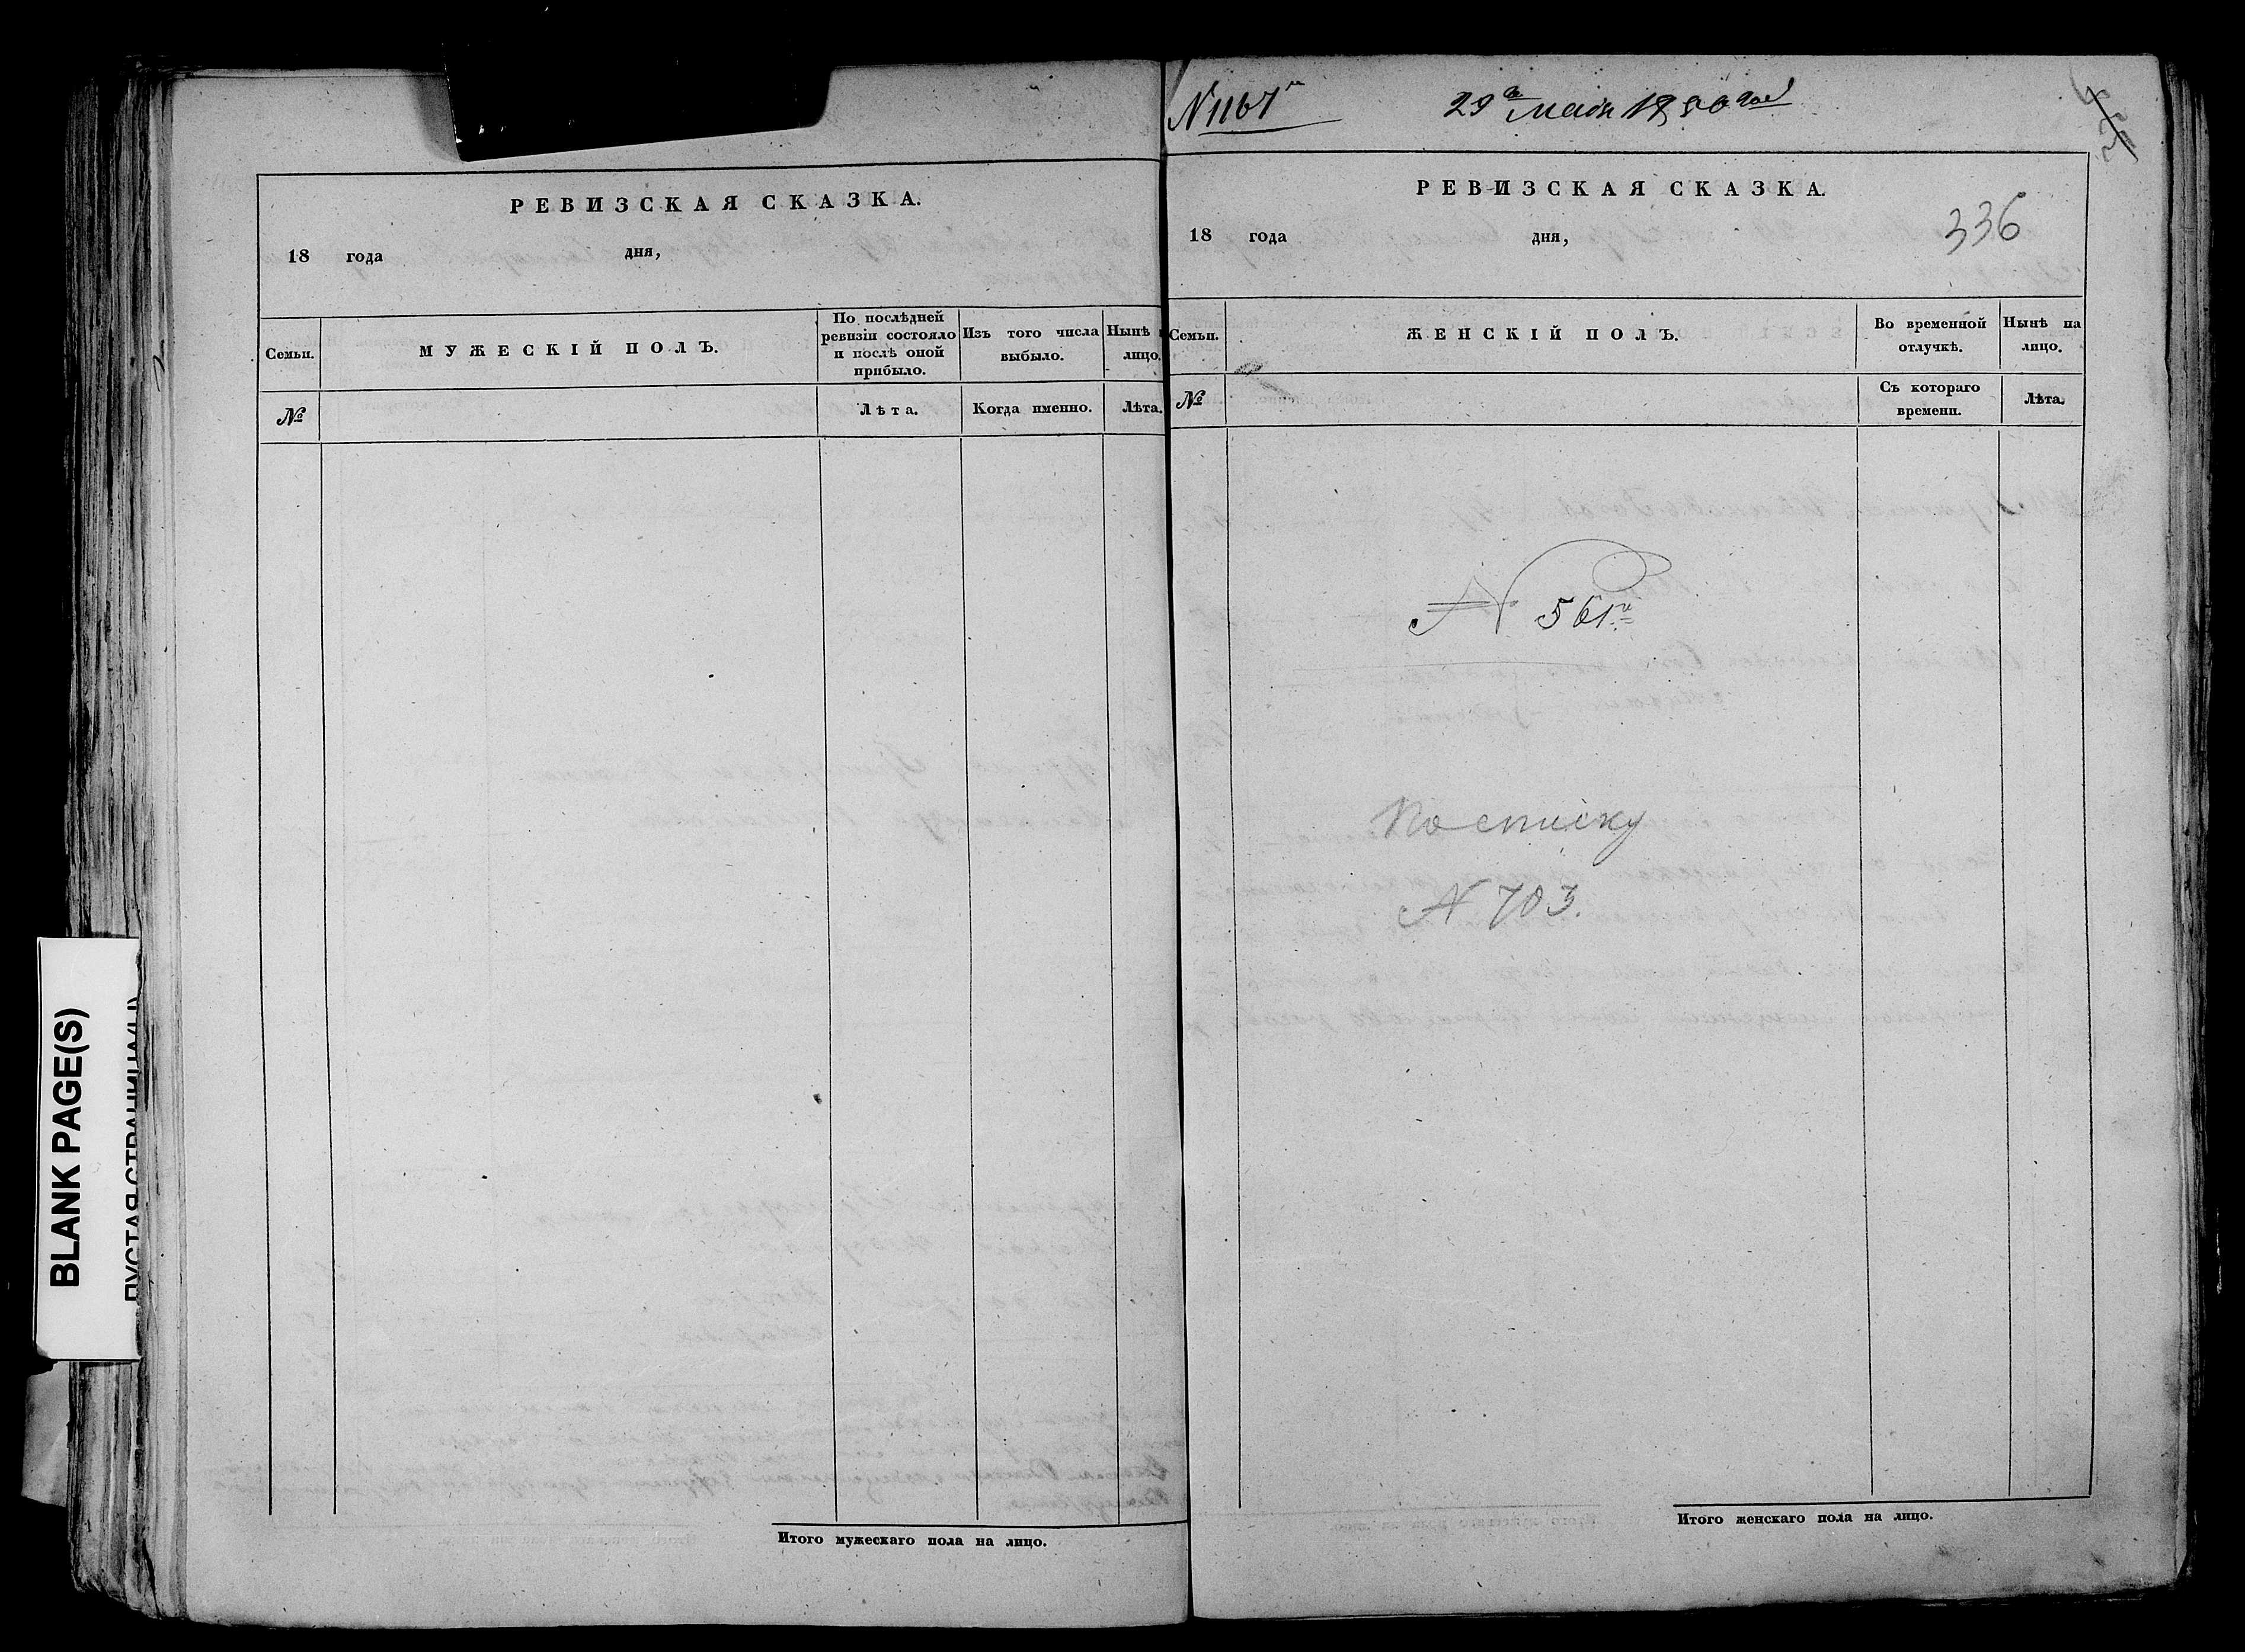 BLANK PAGE(S)
ПУСТАЯ СТРАНИЦА(Ы)
РЕВИЗСКАЯ СКАЗКА.
18 года дня,
Семьи.
МУЖЕСКІЙ ПОЛЪ.
По послѣдней
ревизіи состояло
и послѣ оной
прибыло.
Изъ того числа
выбыло.
Нынѣ
лицо.
№
Лѣта.
Когда именно.
Лѣта.
Итого мужескаго пола на лицо.
N 1167
29 Мая 1850 года
РЕВИЗСКАЯ СКАЗКА.
336
18 года дня,
Семьи.
ЖЕНСКІЙ ПОЛЪ.
Во временной
отлучкѣ.
Нынѣ на
лицо.
№
Съ котораго
времени.
Лѣта.
N 561й
По списку
N 703.
Итого женскаго пола на лицо.